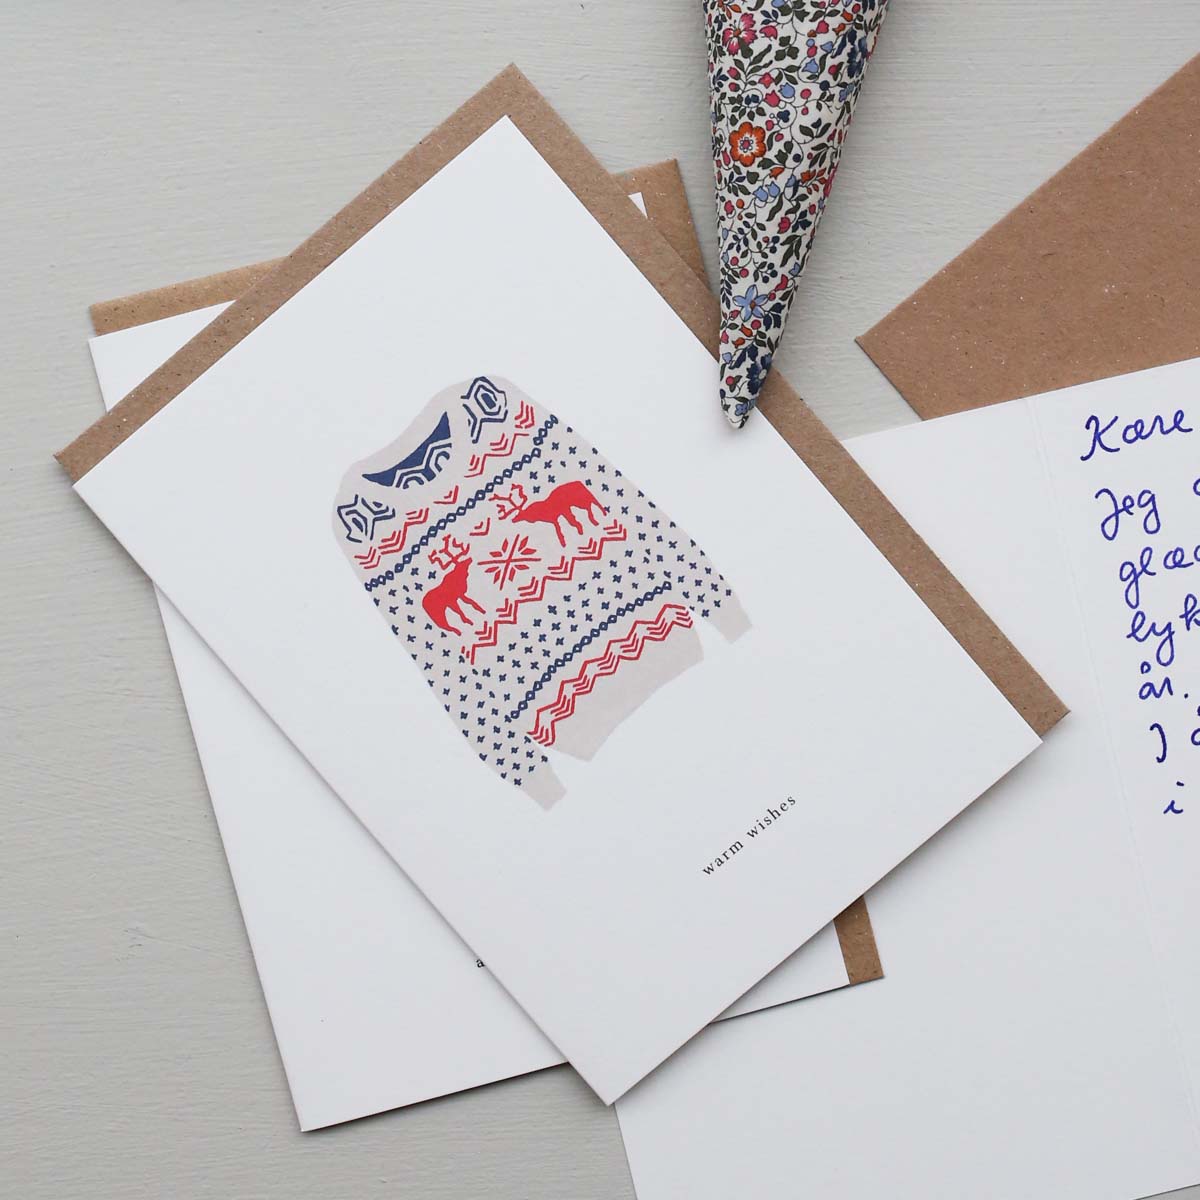 warm wishes
a
Kære
Jeg
glæd
lyk
år.
J
i